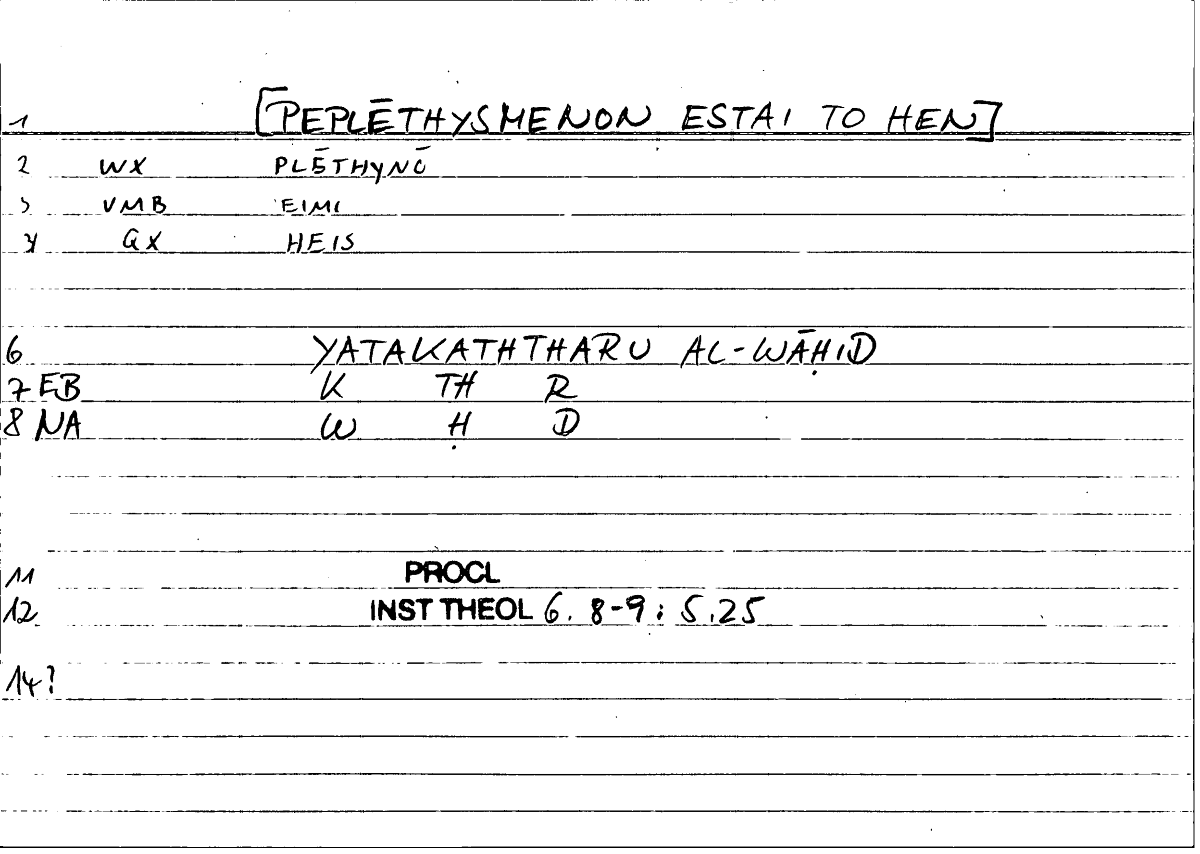 1 [PEPLĒTHYSMENON ESTAI TO HEN]
2 WX PLĒTHYNŌ
3 VMB EIMI
4 GX HEIS
6 YATAKATHTHARU AL-WĀḤID
7 EB K TH R
8 NA W Ḥ D
11 PROCL
12 INST THEOL 6. 8-9 : 5.25
14?